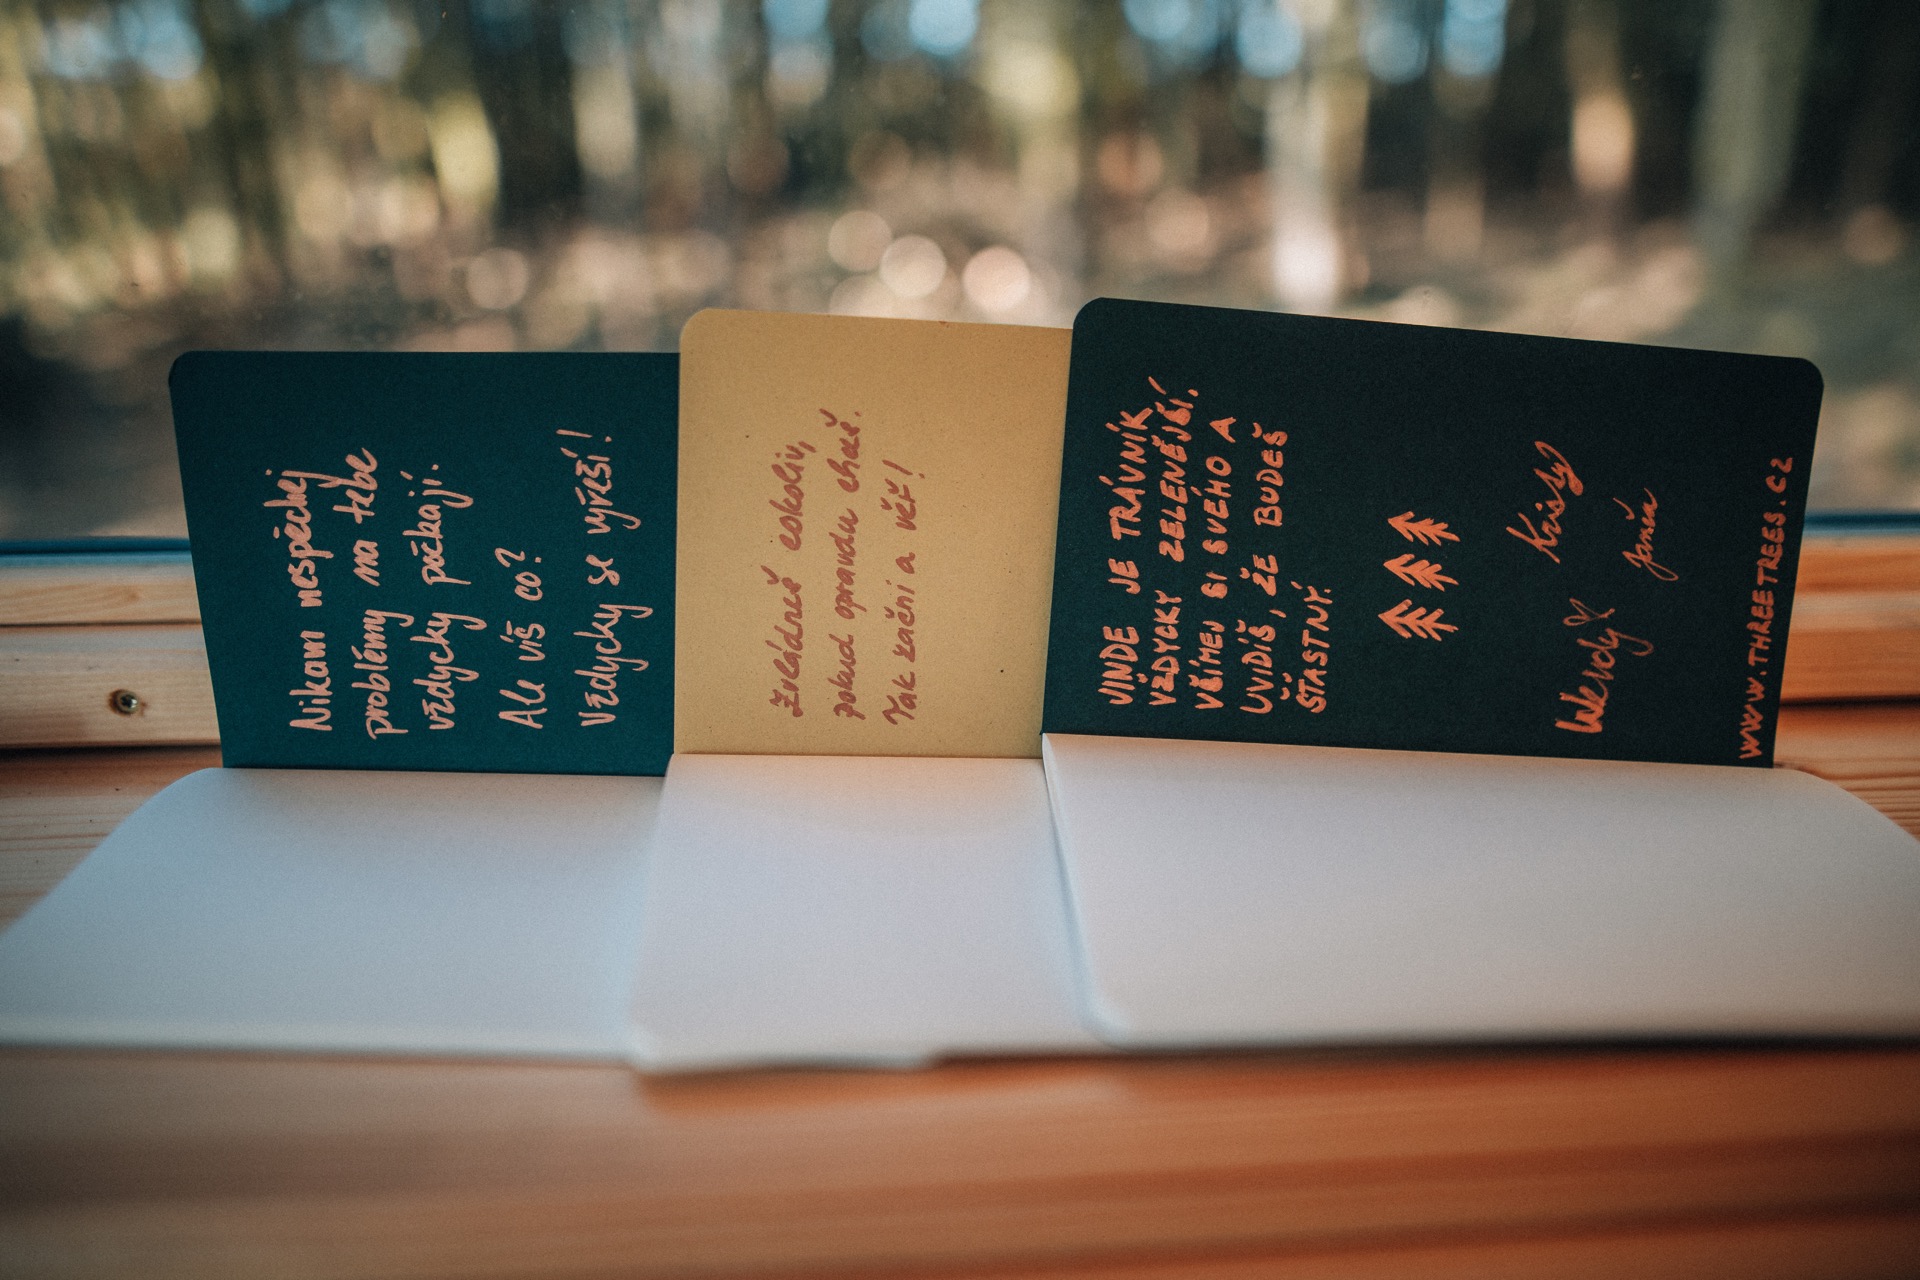 Nikam nespěchej
problémy na tebe
vždycky počkají.
Ale víš co?
Vždycky se vyřeší!
Zvládneš cokoliv,
pokud opravdu chceš.
Tak začni a věř!
JINDE JE TRÁVNÍK
VŽDYCKY ZELENĚJŠÍ.
VŠÍMEJ SI SVÉHO A
UVIDÍŠ, ŽE BUDEŠ
ŠŤASTNÝ.
Wendy
Janča
WWW.THREETREES.CZ